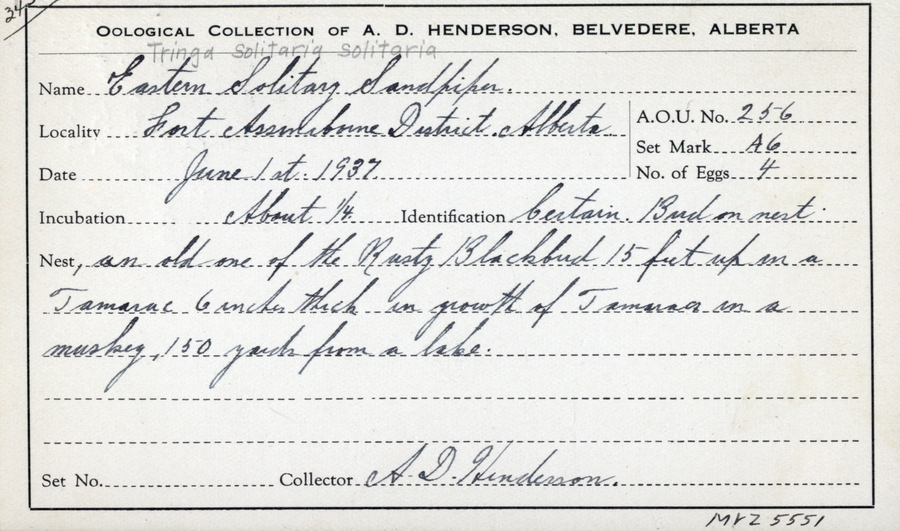 Oological Collection of A. D. Henderson, Belvedere, Alberta
Tringa Solitaria Solitaria
Name Eastern Solitary Sandpiper.
Locality Fort Assiniboine District. Alberta
A.O.U. No. 256
Set Mark A6
Date June 1st. 1937
No. of Eggs 4
Incubation About 1/4 Identification Certain. Bird on nest.
Nest, an old one of the Rusty Blackbird 15 feet up in a
Tamarac 6 inches thick in growth of Tamaracs in a
muskeg, 150 yards from a lake.
Set No. Collector A. D. Henderson.
MVZ 5551